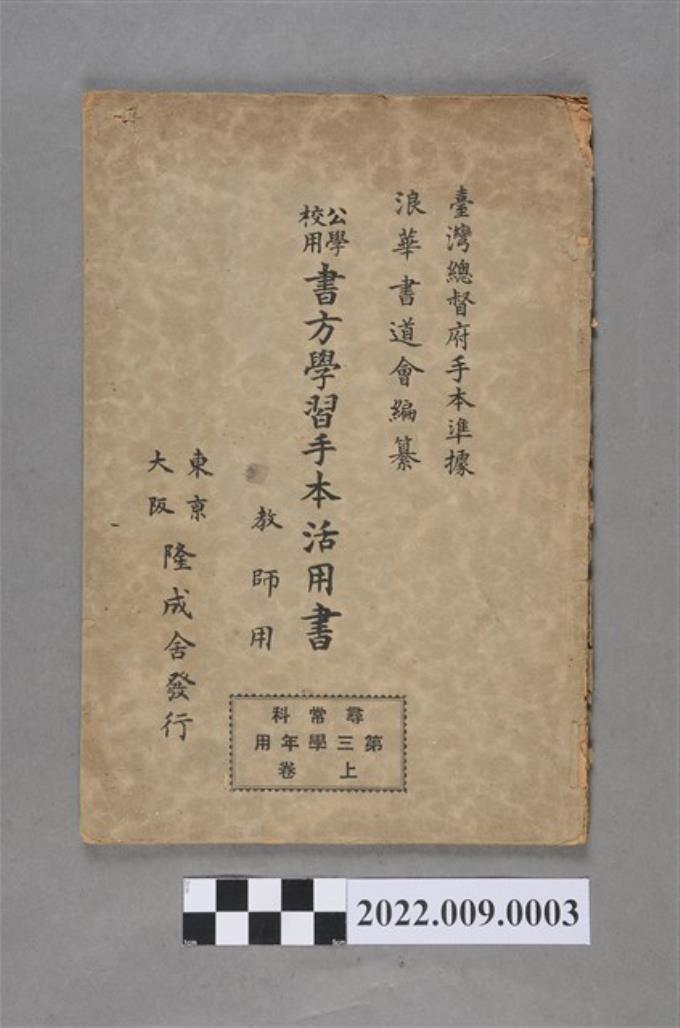 臺灣總督府手本準據
浪華書道會編纂
公學校用
書方學習手本活用書
教師用
東京
大阪
隆成舍發行
尋常科
第三學年用
上卷
2022.009.0003